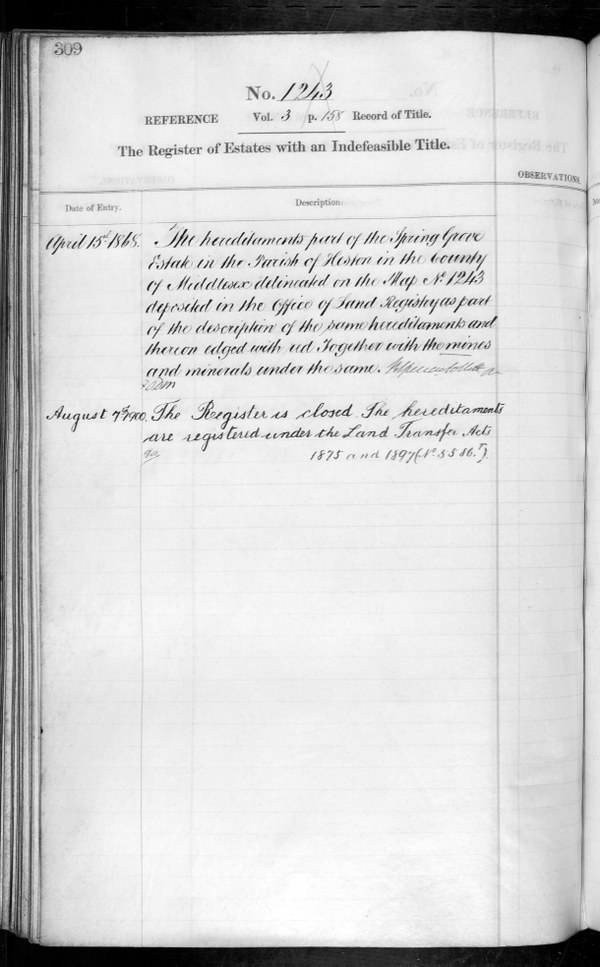 309
No. 1243
REFERENCE Vol. 3 p. 158 Record of Title.
The Register of Estates with an Indefeasible Title.
OBSERVATIONS.
Date of Entry.
Description
April 15th 1868.
The hereditaments part of the Spring Grove
Estate in the Parish of Heston in the County
of Middlesex delineated on the Map No. 1243
deposited in the Office of Land Registry as part
of the description of the same hereditaments and
thereon edged with red Together with the mines
and minerals under the same.
August 7th 1900.
The Register is closed. The hereditaments
are registered under the Land Transfer Acts
1875 and 1897 (No. 5586.T).